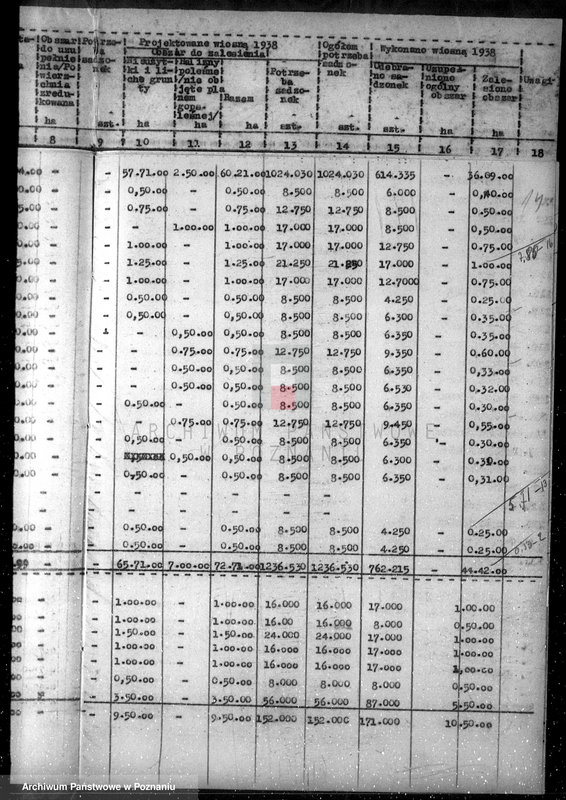 Obszar Potrze- Projektowane wiosną 1938 Ogółem Wykonano wiosną 1938
Obszar do zalesienia potrzeba
sadzonek
Razem Potrzeba sadzonek Uzupełniono ogólny obszar Zalesiono obszar Uwagi
ha szt. ha ha ha szt. szt. szt. ha ha
8 9 10 11 12 13 14 15 16 17 18
- - 57.71.00 2.50.00 60.21.00 1024.030 1024.030 614.335 - 36.09.00
- - 0,50.00 - 0.50.00 8.500 8.500 6.000 - 0,40.00
- - 0.75.00 - 0.75.00 12.750 12.750 8.500 - 0.50.00
- - - 1.00.00 1.00.00 17.000 17.000 8.500 - 0,50.00
- - 1.00.00 - 1.00.00 17.000 17.000 12.750 - 0.75.00
- - 1.25.00 - 1.25.00 21.250 21.250 17.000 - 1.00.00
- - 1.00.00 - 1.00.00 17.000 17.000 12.7000 - 0.75.00
- - 0.50.00 - 0.50.00 8.500 8.500 4.250 - 0.25.00
- - 0,50.00 - 0.50.00 8.500 8.500 6.300 - 0.35.00
- - - 0,50.00 0,50.00 8.500 8.500 6.350 - 0.35.00
- - - 0.75.00 0.75.00 12.750 12.750 9.350 - 0.60.00
- - - 0.50.00 0,50.00 8.500 8.500 6.350 - 0,33.00
- - - 0.50.00 0,50.00 8.500 8.500 6.530 - 0.32.00
- - 0.50.00 - 0.50.00 8.500 8.500 6.350 - 0.30.00
- - - 0.75.00 0.75.00 12.750 12.750 9.450 - 0,55.00
- - 0,50.00 - 0.50.00 8.500 8.500 6.350 - 0.30.00
- - 0,50.00 0,50.00 8.500 8.500 6.300 - 0.30.00
- - 0.50.00 - 0.50.00 8.500 8.500 6.350 - 0,31.00
- - - - - - -
- - - - - - -
- - 0.50.00 - 0.50.00 8.500 8.500 4.250 - 0.25.00
- - 0.50.00 - 0.50.00 8.500 8.500 4.250 - 0.25.00
- - 65.71.00 7.00.00 72.71.00 1236.530 1236.530 762.215 - 44.42.00
- - 1.00.00 - 1.00.00 16.000 16.000 17.000 1.00.00
- - 1.00.00 - 1.00.00 16.00 16.000 8.000 0.50.00
- - 1.50.00 - 1.50.00 24.000 24.000 17.000 1.00.00
- - 1.00.00 - 1.00.00 16.000 16.000 17.000 1.00.00
- - 1.00.00 - 1.00.00 16.000 16.000 17.000 1,00.00
- - 0,50.00 - 0.50.00 8.000 8.000 8.000 0.50.00
- - 3.50.00 - 3.50.00 56.000 56.000 87.000 5.50.00
- - 9.50.00 - 9.50.00 152.000 152.000 171.000 10.50.00
Archiwum Państwowe w Poznaniu